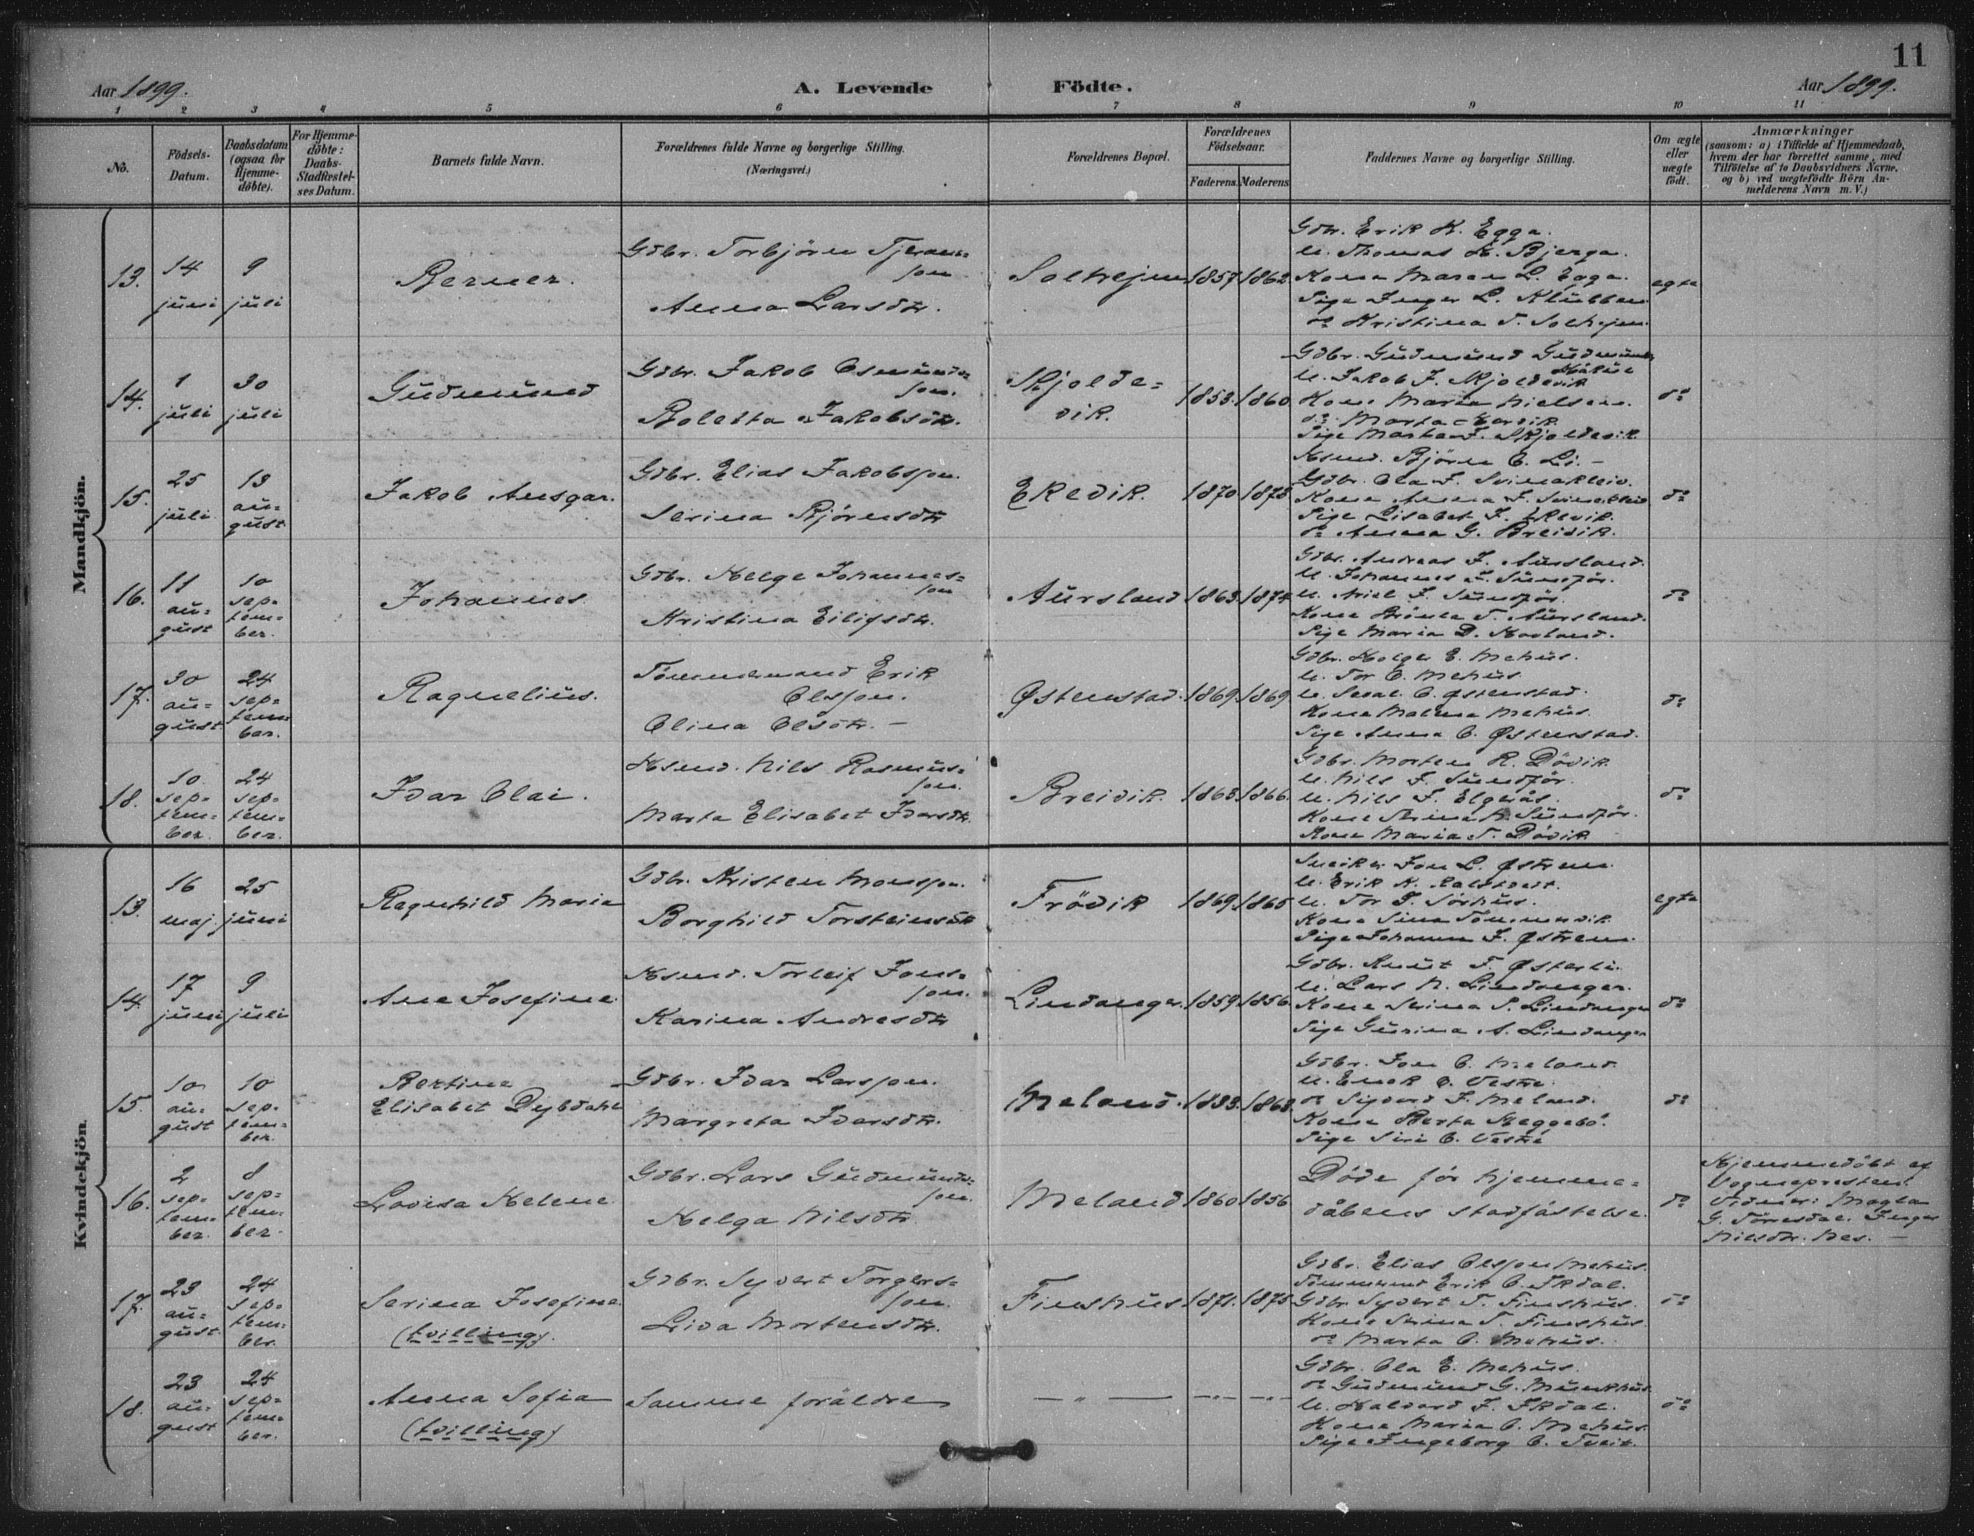 11
Aar 1899.
A. Levende Födte.
Aar 1899.
1 2 3 4 5 6 7 8 9 10 11
No.
Födsels-
Datum.
Daabsdatum
(ogsaa for
Hjemme-
döbte).
For Hjemme-
döbte:
Daabs-
Stadfæstel-
ses Datum.
Barnets fulde Navn.
Forældrenes fulde Navne og borgerlige Stilling.
(Næringsvei.)
Forældrenes Bopæl.
Forældrenes
Födselsaar.
Faderens. Moderens.
Faddernes Navne og borgerlige Stilling.
Om ægte
eller
uægte
födt.
Anmærkninger
(saasom: a) i Tilfælde af Hjemmedaab,
hvem der har forrettet samme, med
Tilföielse af to Daabsvidners Navne,
og b) ved uægtefödte Börn An-
melderens Navn m. V.)
Mandkjön.
13.
14
juni
9
juli
Berner.
Gdbr. Torbjörn
son
Anna Larsdtr.
1857. 1862.
Gdbr. Erik K. Egga.
U. Thomas H. Bjerga.
Kone Maren L. Egga.
Pige Inger L. Klubben
do Kristina T.
egte
14.
1
juli
30
juli
Gudmund
Gdbr. Jakob Osmunds=
son.
Boletta Jakobsdtr.
Skjolde=
vik.
1853. 1860.
Gdbr. Gudmund
U. Jakob J. Skjoldevik
Kone Maria Nielsen.
do. Marta
Pige Marta J. Skjoldevik
do
15.
25
juli
13
au=
gust
Jakob Ansgar.
Gdbr. Elias Jakobsson.
Serina Bjørnsdtr
Ekevik.
1870. 1873
Husmd. Björn E. Li. —
Gdbr. Ola J. Svinakleiv.
Kone Anna J. Svinakleiv
Pige Lisabet J. Ekevik.
do Anna G. Breivik.
do
16.
11
au=
gust
10
sep=
tem=
ber.
Johannes
Gdbr. Helge Johannes=
son
Kristina Eilifsdtr.
Aursland
1863. 1874.
Gdbr. Andreas J. Aursland.
U. Johannes J. Sundför.
Sundför
T. Aursland.
Pige Maria D.
do
17.
30
au=
gust
24
sep=
tem=
ber.
Ragnelius.
Tömmermand Erik
Olsson.
Olina Olsdtr. —
Østenstad.
1869. 1869
Gdbr. Holger E. Mehus.
U. Tor O. Mehus
O. Østenstad.
Kone Malena Mehus.
Pige Anna O. Østenstad.
do
18.
10
sep=
tem=
ber.
24
sep=
tem=
ber.
Ivar Olai.
Husmd. Nils Rasmus=
son.
Marta Elisabet Ivarsdtr.
Breivik.
1863. 1866.
Gdbr. Morten R. Dövik
U. Nils J. Sundför.
U. Nils J. Elgenäs.
Kone Serina N. Sundför.
Kone Maria T. Dövik
do
Kvindekjön.
13.
16
maj
25
juni
Ragnhild Maria
Gdbr. Kristen Monsson.
Borghild Torsteinsdtr
Frövik
1869. 1865
Snekker Jon L. Østrem
U. Erik N.
U. Tor T. Sörhus.
Kone Sina Tömmervik
Pige Johanna J. Østrem.
egte
14.
17
juni
9
juli
Ane Josefine
Husmd. Torleif Jons=
son.
Karina Andresdtr
Lindanger.
1859. 1856.
Gdbr. Knut T. Østerli.
U. Lars N. Lindanger.
Kone Serina S. Lindanger
Pige Gurina A. Lindanger
do
15.
10
au=
gust
10
sep=
tem=
ber.
Bertine
Elisabet Dybdahl
Gdbr. Ivar Larsson.
Margreta Ivarsdtr.
Meland.
1833. 1863.
Gdbr. Jon O. Meland
U. Enok O. Vestre.
do Sigvard J. Meland.
Kone Berta Skeggebö.
Pige Siri O. Vestre
do
16.
2
sep=
tem=
ber.
8
sep=
tem=
ber.
Lovisa Helene
Gdbr. Lars Gudmunds=
son.
Helga Nilsdtr
Meland
1860. 1856.
Døde før hjemme=
dåbens stadfästelse.
do
Hjemmedöbt af
Vognepresten.
Vidner: Magla
G. Tørresdal. Inger
Nilsdtr. Nes. —
17.
23
au=
gust
24
sep=
tem=
ber.
Serina Josefine.
(tvilling).
Gdbr. Syvert Torgers=
son.
Liva Mortensdtr.
Finshus
1871. 1875.
Gdbr. Elias Olsson Mehus.
Tömmermd Erik O. Ikdal.
Gdbr Syvert T. Finshus.
Kone Serina T. Finshus
do Marta O. Mehus.
do
18.
23
au=
gust
24
sep=
tem=
ber.
Anna Sofia
(tvilling)
Samme foräldre
— " — —"— —"—
Gdbr. Ola E. Mehus.
do Gudmund G. Munkhus
U. Halvard J. Ikdal.
Kone Maria O. Mehus.
Pige Ingeborg O. Tveit.
do